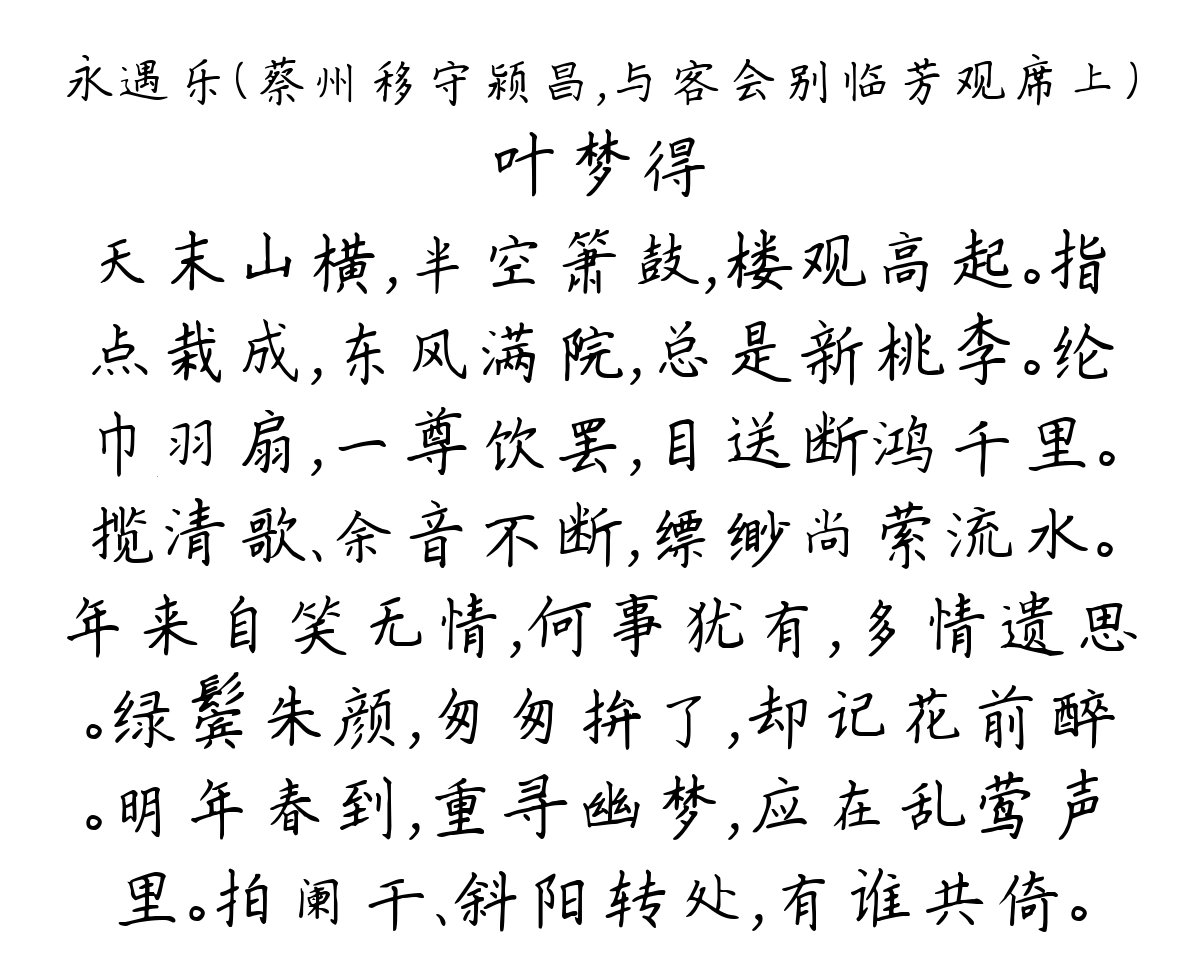 永遇乐(蔡州移守颍昌,与客会别临芳观席上)
叶梦得
天末山横,半空箫鼓,楼观高起。指
点栽成,东风满院,总是新桃李。纶
巾羽扇,一尊饮罢,目送断鸿千里。
揽清歌、余音不断,缥缈尚萦流水。
年来自笑无情,何事犹有,多情遗思
。绿鬓朱颜,匆匆拚了,却记花前醉
。明年春到,重寻幽梦,应在乱莺声
里。拍阑干、斜阳转处,有谁共倚。